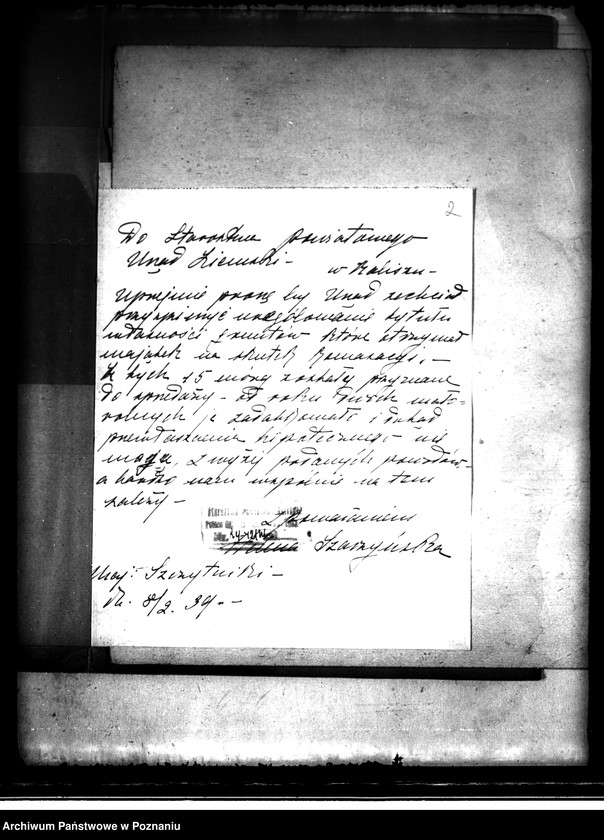 2
Do Starostwa powiatowego
Urząd Ziemski -
w Kaliszu -
Uprzejmie proszę by Urząd zechciał
przyśpieszyć uregulowanie tytułu
własności gruntów które otrzymał
majątek na skutek Komasacji. -
Z tych 15 morg zostały przyznane
do sprzedaży - od roku
je zadatkowało i dotąd
przewłaszczenia hipotecznego nie
mogą, z wyżej podanych powodów -
a bardzo nam wspólnie na tem
zależy -
z poważaniem
Szaczyńska
Maj. Szczytniki -
dn. 8/2. 39. -
Archiwum Państwowe w Poznaniu